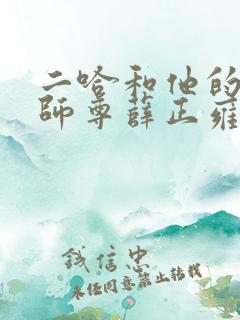 二哈和他的
師尊薛正雍
錢信忠
未经同意禁止转载